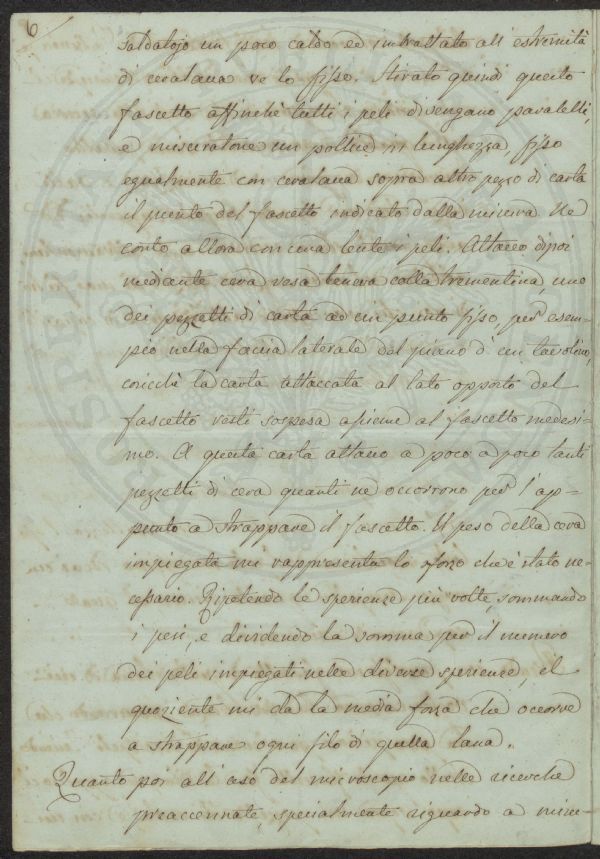 6
saldatojo un poco caldo ed imbrattato all'estremità
di ceralacca ve lo fisso. Stirato quindi questo
fascetto affinchè tutti i peli divengano paralelli,
e misuratone un pollice in lunghezza, fisso
egualmente con ceralacca sopra altro pezzo di carta
il punto del fascetto indicato dalla misura. Ne
conto allora con una lente i peli. Attacco dipoi
mediante cera resa tenera colla trementina, uno
dei pezzetti di carta ad un punto fisso, per esem-
pio nella faccia laterale del piano d'un tavolino,
cosicchè la carta attaccata al lato opposto del
fascetto resti sospesa assieme al fascetto medesi-
mo. A questa carta attacco a poco a poco tanti
pezzetti di cera quanti ne occorrono per l'ap-
punto a strappare il fascetto. Il peso della cera
impiegata mi rappresenta lo sforzo che è stato ne-
cessario. Ripetendo le sperienze più volte, sommando
i pesi, e dividendo la somma per il numero
dei peli impiegati nelle diverse sperienze, il
quoziente mi dà la media forza che occorre
a strappare ogni filo di quella lana.
Quanto poi all'uso del microscopio nelle ricerche
preaccennate, specialmente riguardo a misu-